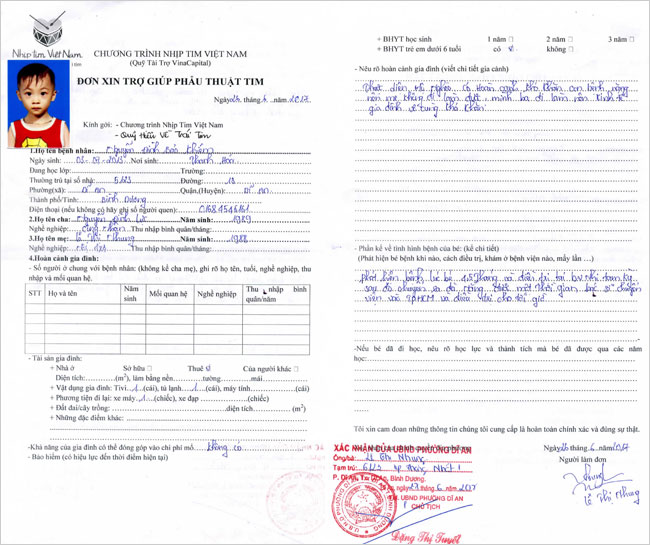 Nhịp Tim Việt Nam
CHƯƠNG TRÌNH NHỊP TIM VIỆT NAM
(Quỹ Tài Trợ VinaCapital)
ĐƠN XIN TRỢ GIÚP PHẪU THUẬT TIM
Ngày 26 tháng 6 năm 2017
Kính gửi: - Chương trình Nhịp Tim Việt Nam
- Quỹ Hiểu Về Trái Tim
1.Họ tên bệnh nhân: Nguyễn Đình Bảo Khám
Ngày sinh: 03-07-2013 Nơi sinh: Thanh Hóa
Đang học lớp: Trường:
Thường trú tại số nhà: Đường: 13
Phường(xã): Dĩ An Quận,(Huyện): Dĩ An
Thành phố/Tỉnh: Bình Dương
Điện thoại (nếu không có hãy ghi số người quen): 01684546161
2.Họ tên cha: Nguyễn Đình Lực Năm sinh: 1989
Nghề nghiệp: Công Nhân Thu nhập bình quân/tháng:
3.Họ tên mẹ: Lê Thị Nhung Năm sinh: 1988
Nghề nghiệp: Thu nhập bình quân/tháng:
4.Hoàn cảnh gia đình:
- Số người ở chung với bệnh nhân: (không kể cha mẹ), ghi rõ họ tên, tuổi, nghề nghiệp, thu
nhập và mối quan hệ.
STT Họ và tên Năm sinh Mối quan hệ Nghề nghiệp Thu nhập bình quân/năm
- Tài sản gia đình:
+ Nhà ở Sở hữu □ Thuê ☑ Của người khác □
Diện tích: (m²), làm bằng nền tường mái
+ Vật dụng gia đình: Tivi 1 (cái), tủ lạnh 1 (cái), máy tính (cái)
+ Phương tiện đi lại: xe máy 1 (chiếc), xe đạp (chiếc)
+ Đất đai/cây trồng: diện tích (m²)
+ Những đặc điểm khác:
-Khả năng của gia đình có thể đóng góp vào chi phí mổ: không có
- Bảo hiểm (có hiệu lực đến thời điểm hiện tại)
+ BHYT học sinh 1 năm □ 2 năm □ 3 năm □
+ BHYT trẻ em dưới 6 tuổi có ☑ không □
- Nêu rõ hoàn cảnh gia đình (viết chi tiết gia cảnh)
có hoàn cảnh khó khăn con bệnh nặng
nên mẹ không đi làm được mình ba đi làm nên kinh tế
gia đình vô cùng khó khăn
- Phần kể về tình hình bệnh của bé: (kể chi tiết)
(Phát hiện bệnh khi nào, cách điều trị, khám ở bệnh viện nào, mấy lần …)
phát hiện bệnh lúc bé 1,5 tháng và điều trị tại bv nhi
sau đó chuyển một thời gian bác sĩ chuyển
viện vào TPHCM và điều trị cho tới giờ
-Nếu bé đã đi học, nêu rõ học lực và thành tích mà bé đã được qua các năm
học:
Tôi xin cam đoan những thông tin chúng tôi cung cấp là hoàn toàn chính xác và đúng sự thật.
Ngày 26 tháng 6 năm 2017
Người làm đơn
Nhung
Lê Thị Nhung
XÁC NHẬN CỦA UBND PHƯỜNG DĨ AN
Ông/bà: Lê Thị Nhung
Tạm trú: Thống Nhất 1
P. Dĩ An, TX Dĩ An, Bình Dương.
Ngày 27 tháng 6 năm 2017
TM. UBND PHƯỜNG DĨ AN
CHỦ TỊCH
Đặng Thị Tuyết